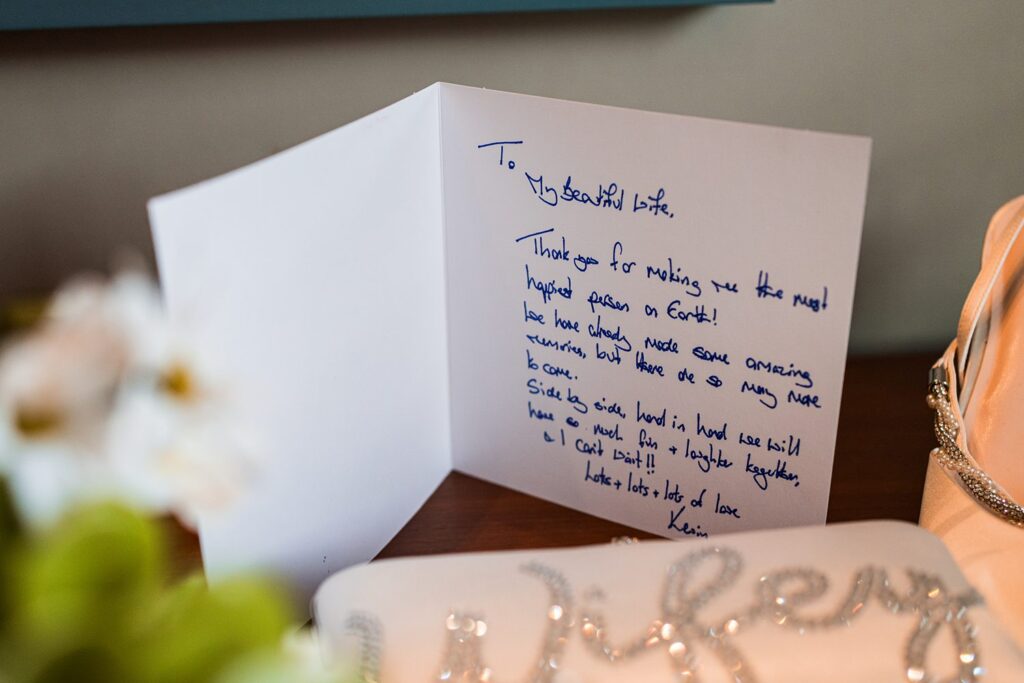 To
My Beautiful Wife,
Thank you for making me the most
happiest person on Earth!
We have already made some amazing
memories, but there are so many more
to come.
Side by side, hand in hand we will
have so much fun + laughter together,
& I can't wait!!
Lots + lots + lots of love
Kevin
Wifey